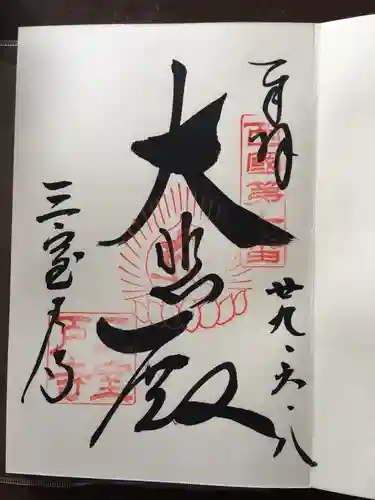 奉拝
西國第十番
廿九・六・八
大悲殿
三室戸寺
三室戸寺